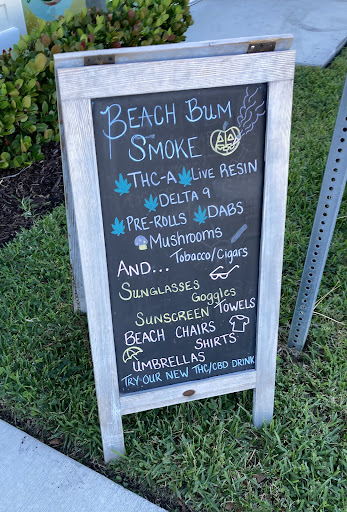 BEACH BUM
SMOKE
THC-A LIVE RESIN
DELTA 9
PRE-ROLLS DABS
MUSHROOMS
TOBACCO/CIGARS
AND...
SUNGLASSES
GOGGLES
SUNSCREEN TOWELS
BEACH CHAIRS
SHIRTS
UMBRELLAS
TRY OUR NEW THC/CBD DRINK